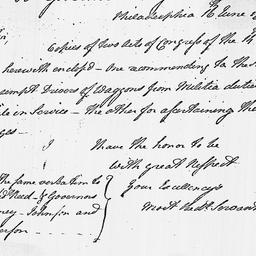 Philadelphia 16 June
Sir,
Copies of two Acts of Congress of the 14
herewith enclos'd - One recommending to the
exempt Drivers of Waggons from Militia duties
while in Service - The other for ascertaining the
ges -
I have the honor to be
with great Respect
Your Excellency's
Most Obedt. Servant
The same verbatim to
Reed - & Governors
ney - Johnson and
erson